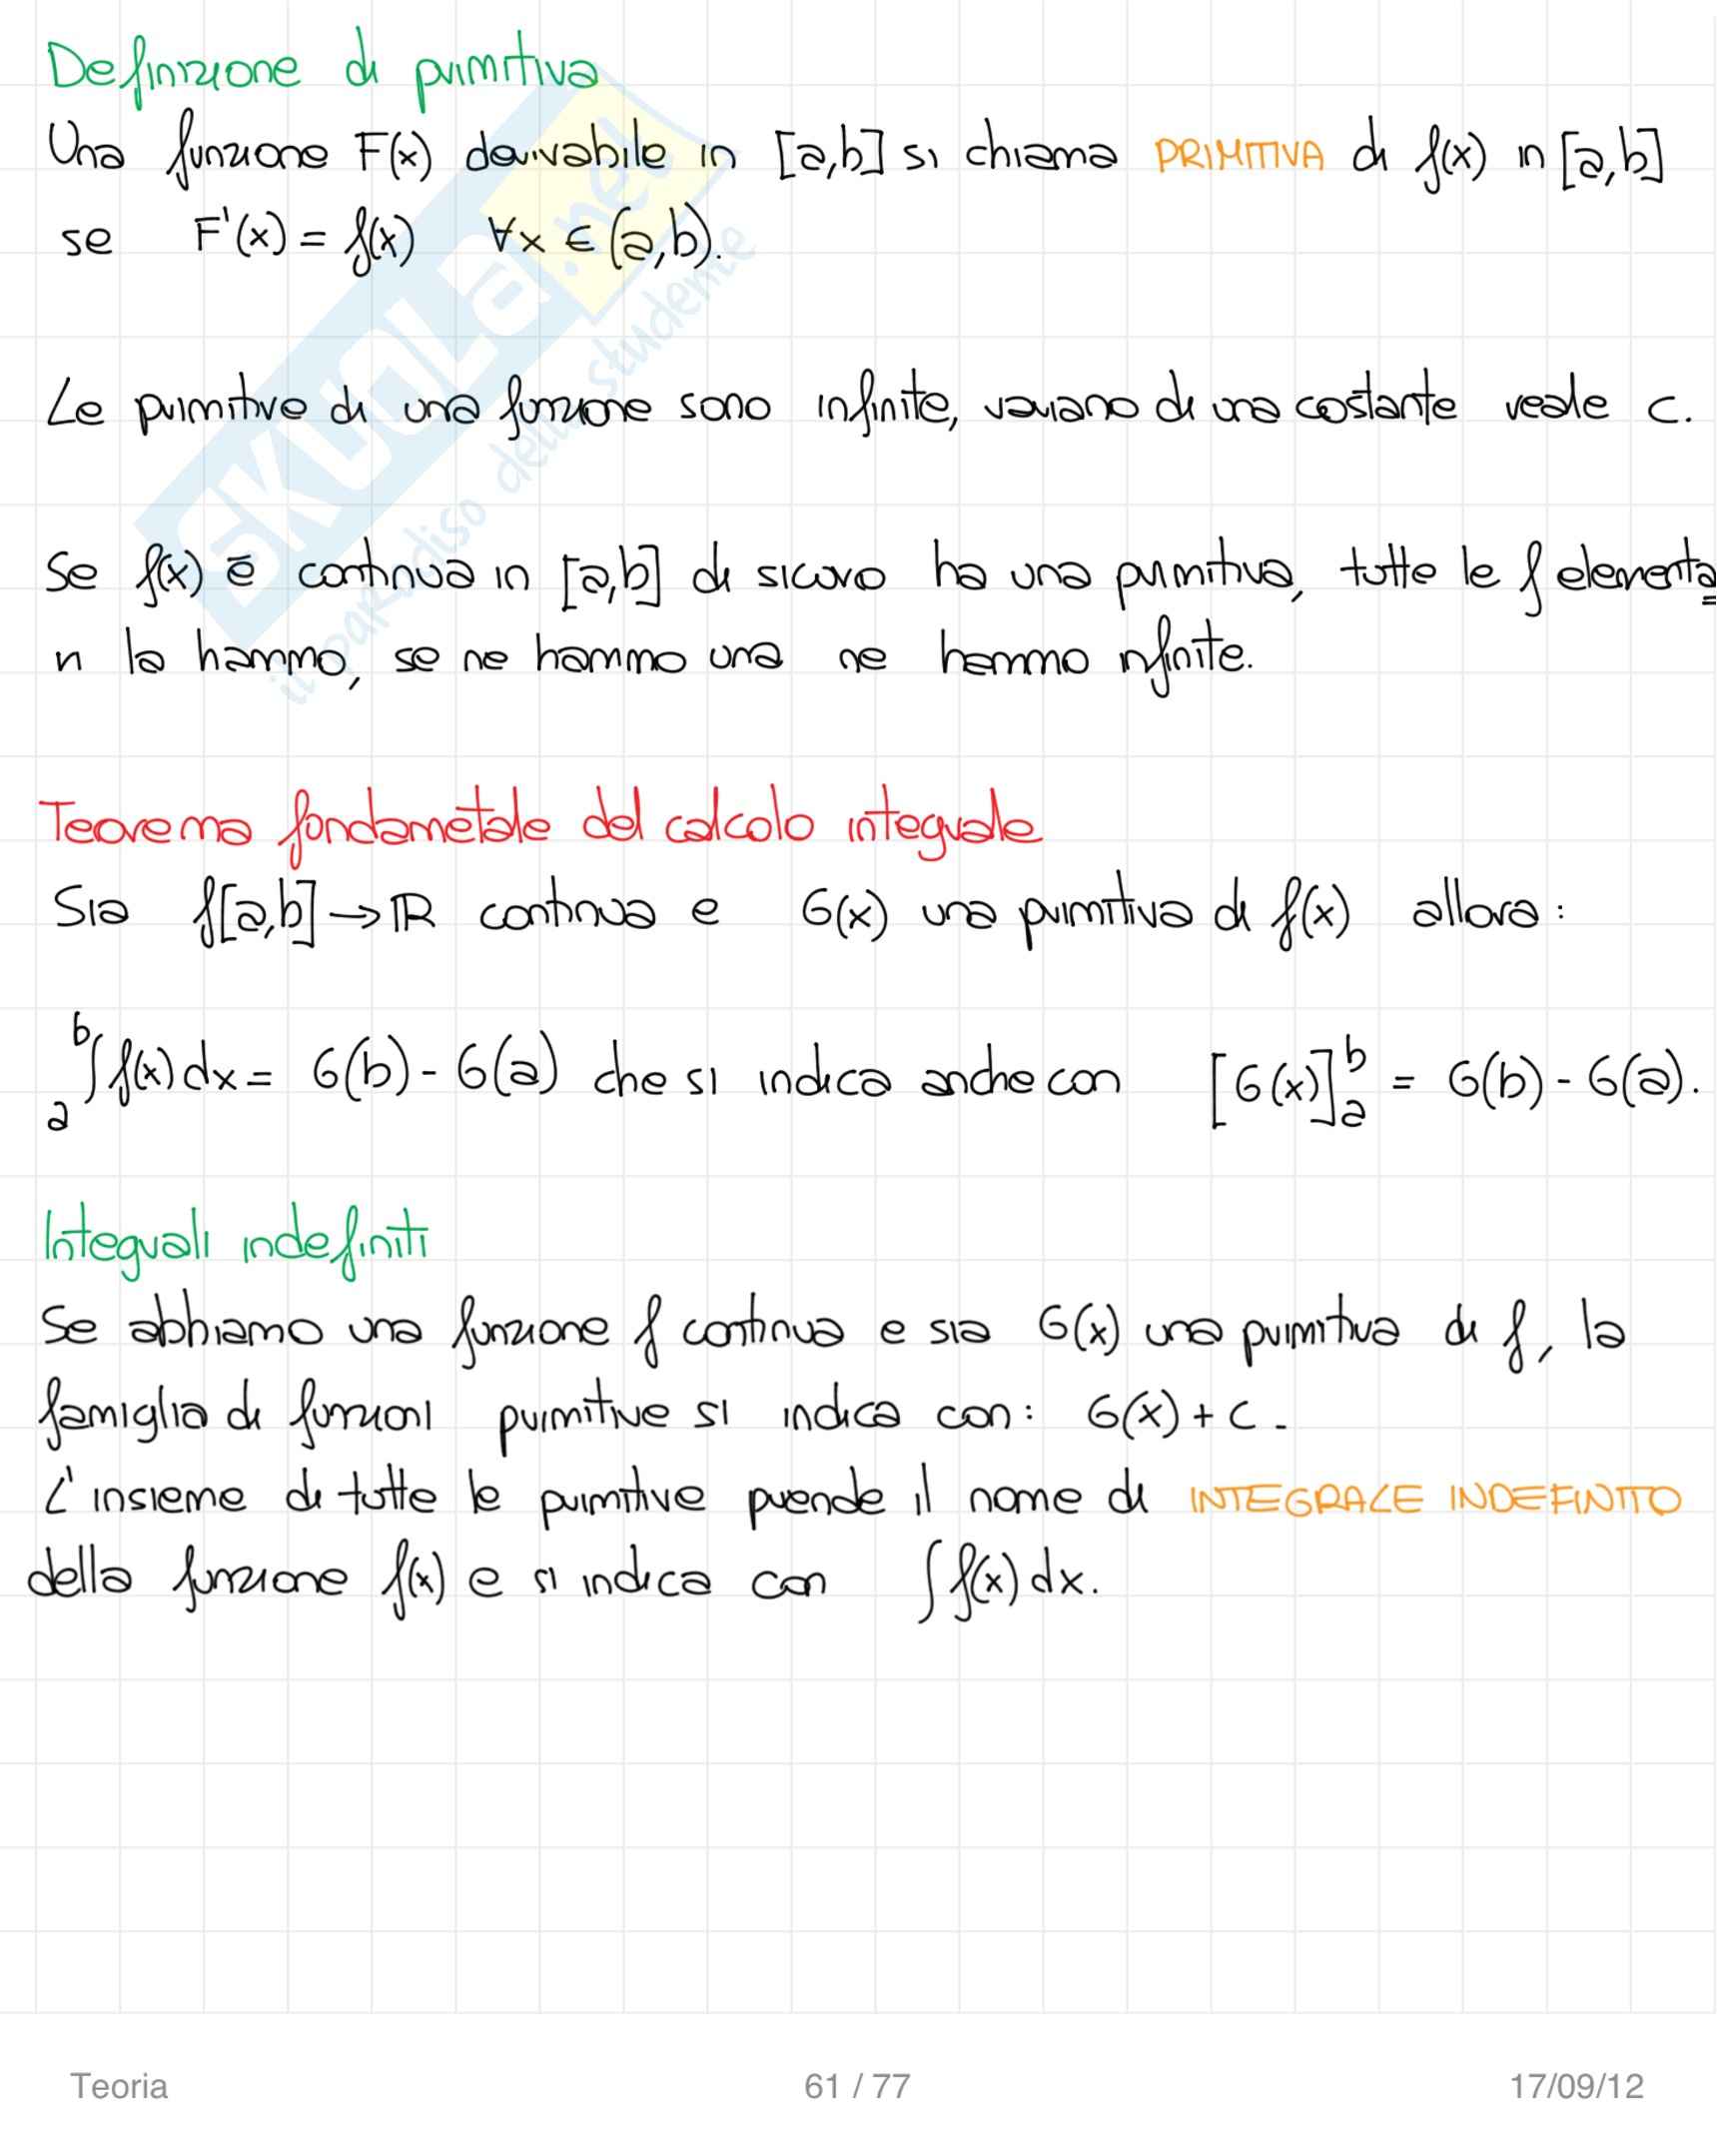 Definizione di primitiva
Una funzione F(x) derivabile in [a,b] si chiama PRIMITIVA di f(x) in [a,b]
se F'(x) = f(x) ∀x ∈ (a,b).
Le primitive di una funzione sono infinite, variano di una costante reale c.
Se f(x) è continua in [a,b] di sicuro ha una primitiva, tutte le f elementa=
ri la hanno, se ne hanno una ne hanno infinite.
Teorema fondametale del calcolo integrale
Sia f[a,b] → ℝ continua e G(x) una primitiva di f(x) allora:
a∫b f(x) dx = G(b) - G(a) che si indica anche con [G(x)]ab = G(b) - G(a).
Integrali indefiniti
Se abbiamo una funzione f continua e sia G(x) una primitiva di f, la
famiglia di funzioni primitive si indica con: G(x) + c.
L'insieme di tutte le primitive prende il nome di INTEGRALE INDEFINITO
della funzione f(x) e si indica con ∫ f(x) dx.
SKUOLa.net
il paradiso dello studente
Teoria 61 / 77 17/09/12